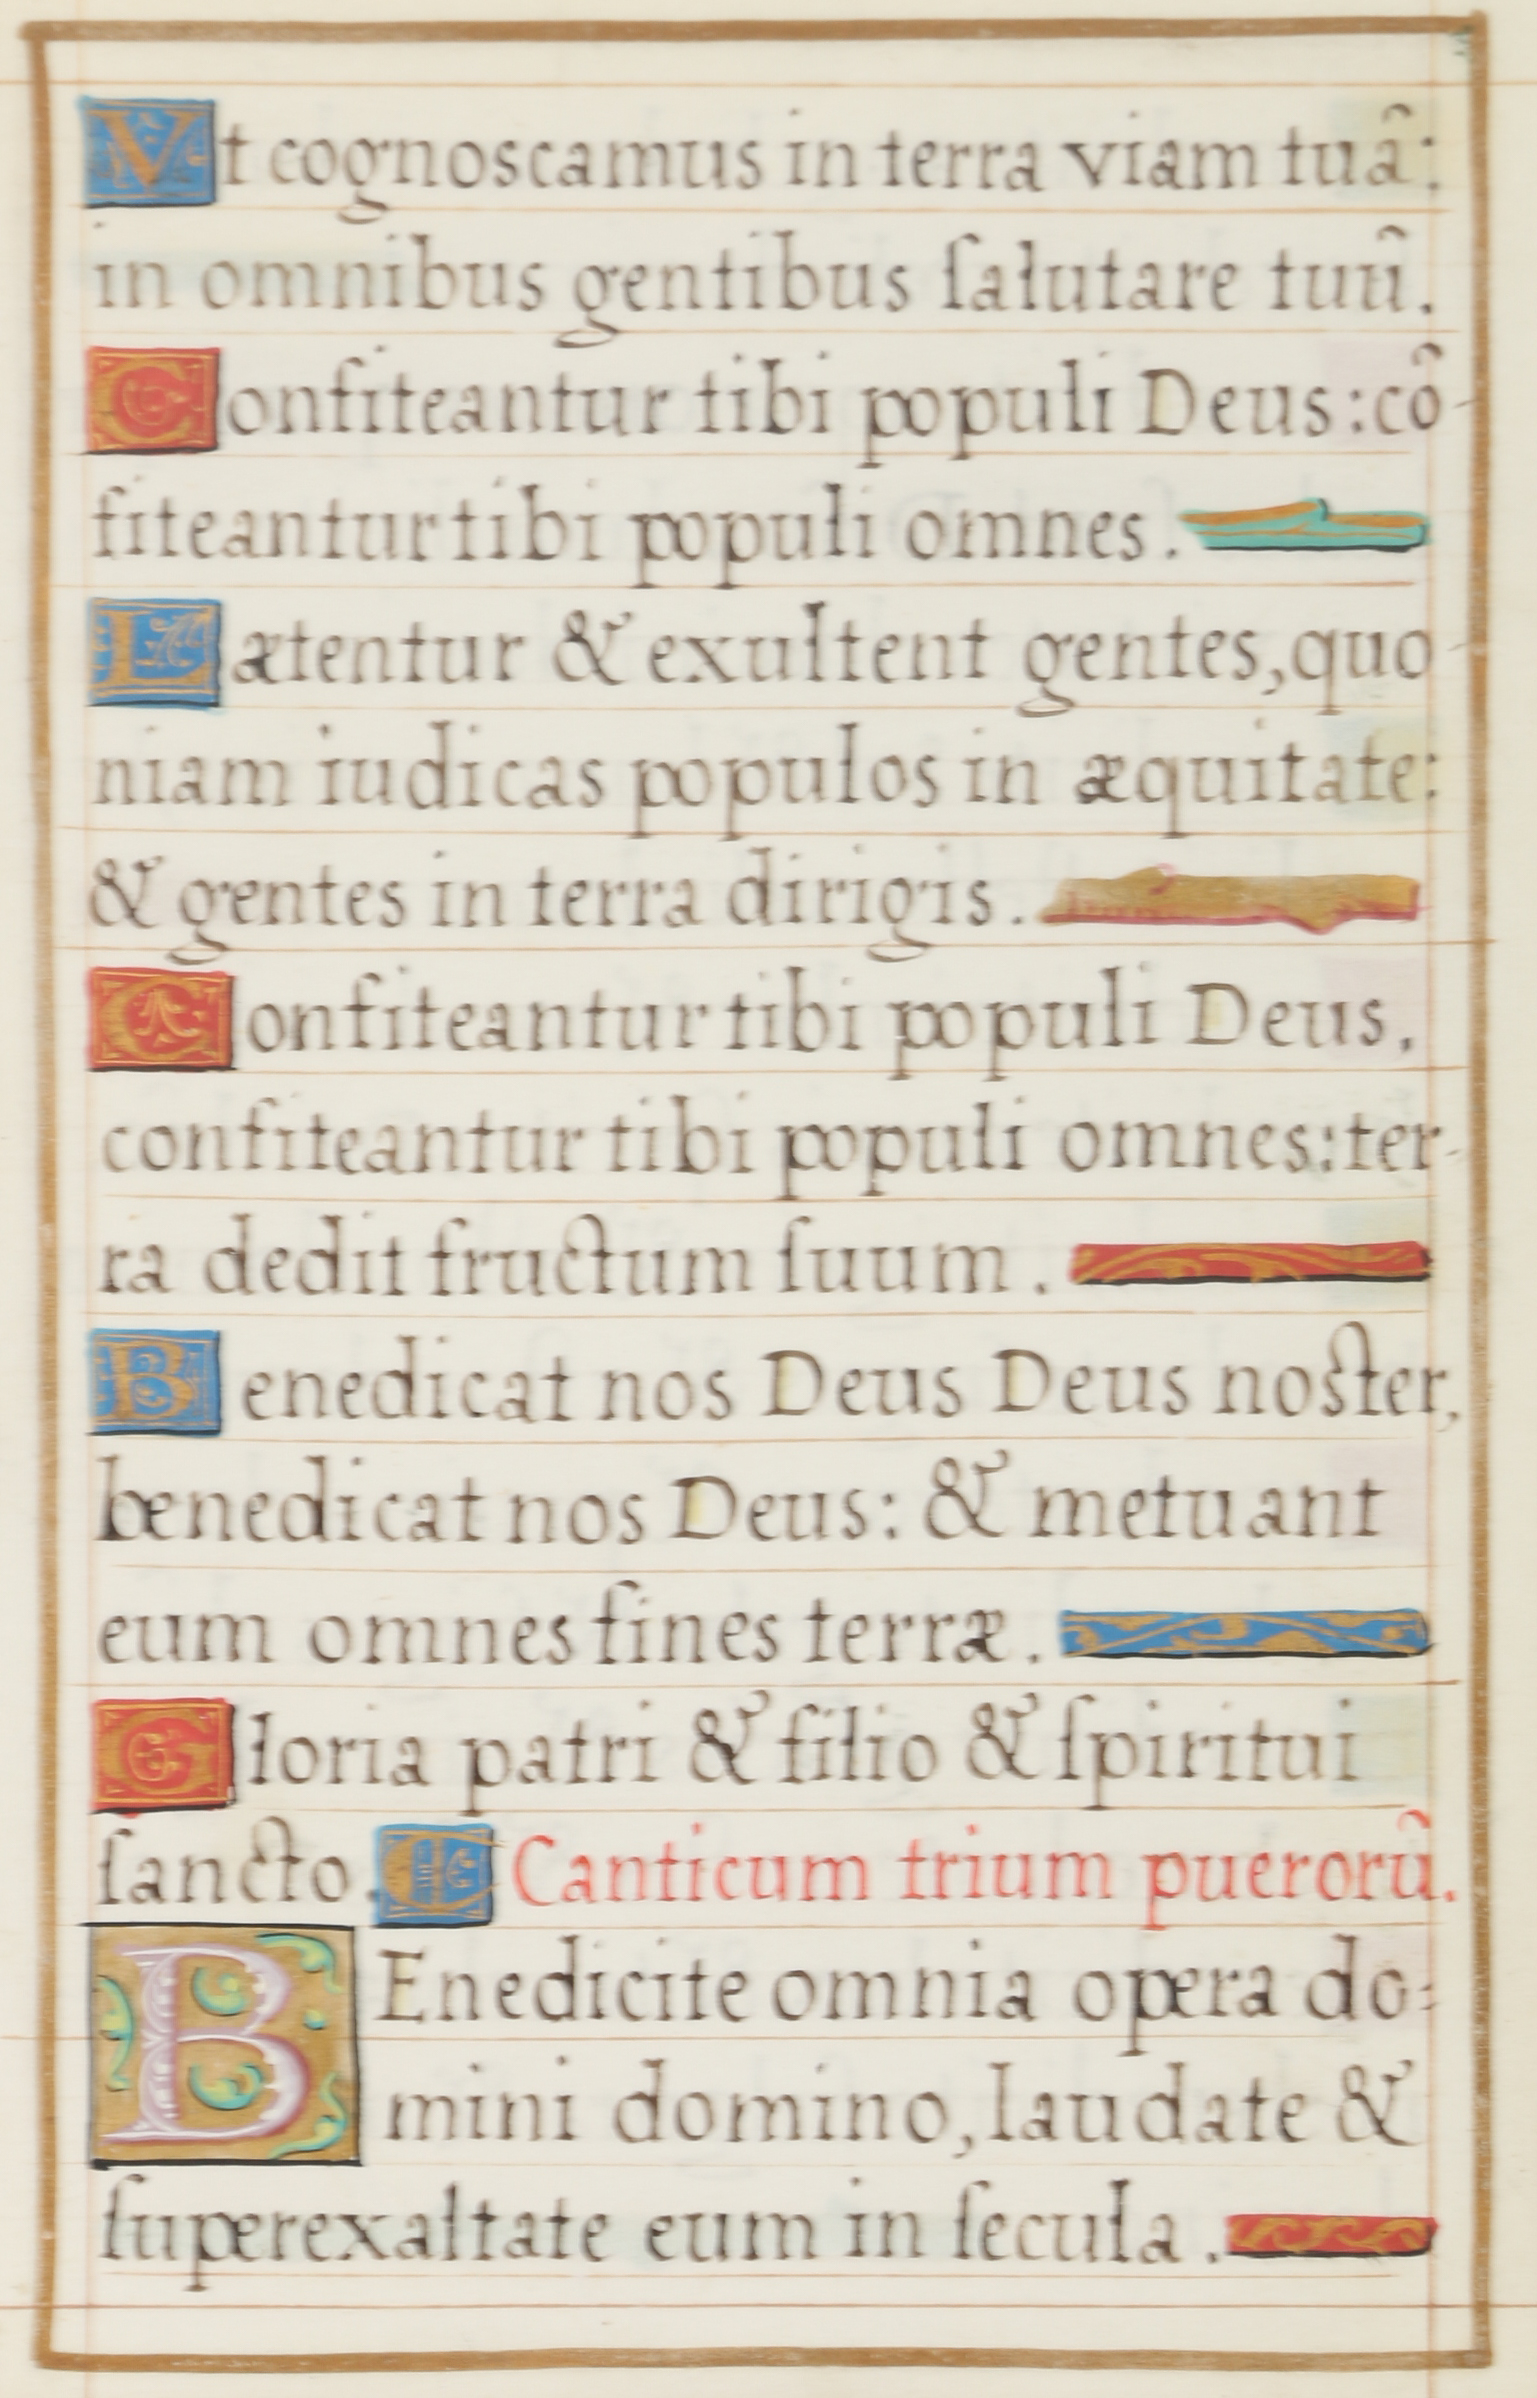 Vt cognoscamus in terra viam tuã:
in omnibus gentibus ſalutare tuũ.
Confiteantur tibi populi Deus: cõ-
fiteantur tibi populi omnes.
Lætentur & exultent gentes, quo-
niam iudicas populos in æquitate:
& gentes in terra dirigis.
Confiteantur tibi populi Deus.
confiteantur tibi populi omnes: ter-
ra dedit fructum ſuum.
Benedicat nos Deus Deus noster,
benedicat nos Deus: & metuant
eum omnes fines terræ.
Gloria patri & filio & ſpiritui
ſancto. Canticum trium puerorũ.
BEnedicite omnia opera do-
mini domino, laudate &
ſuperexaltate eum in ſecula.